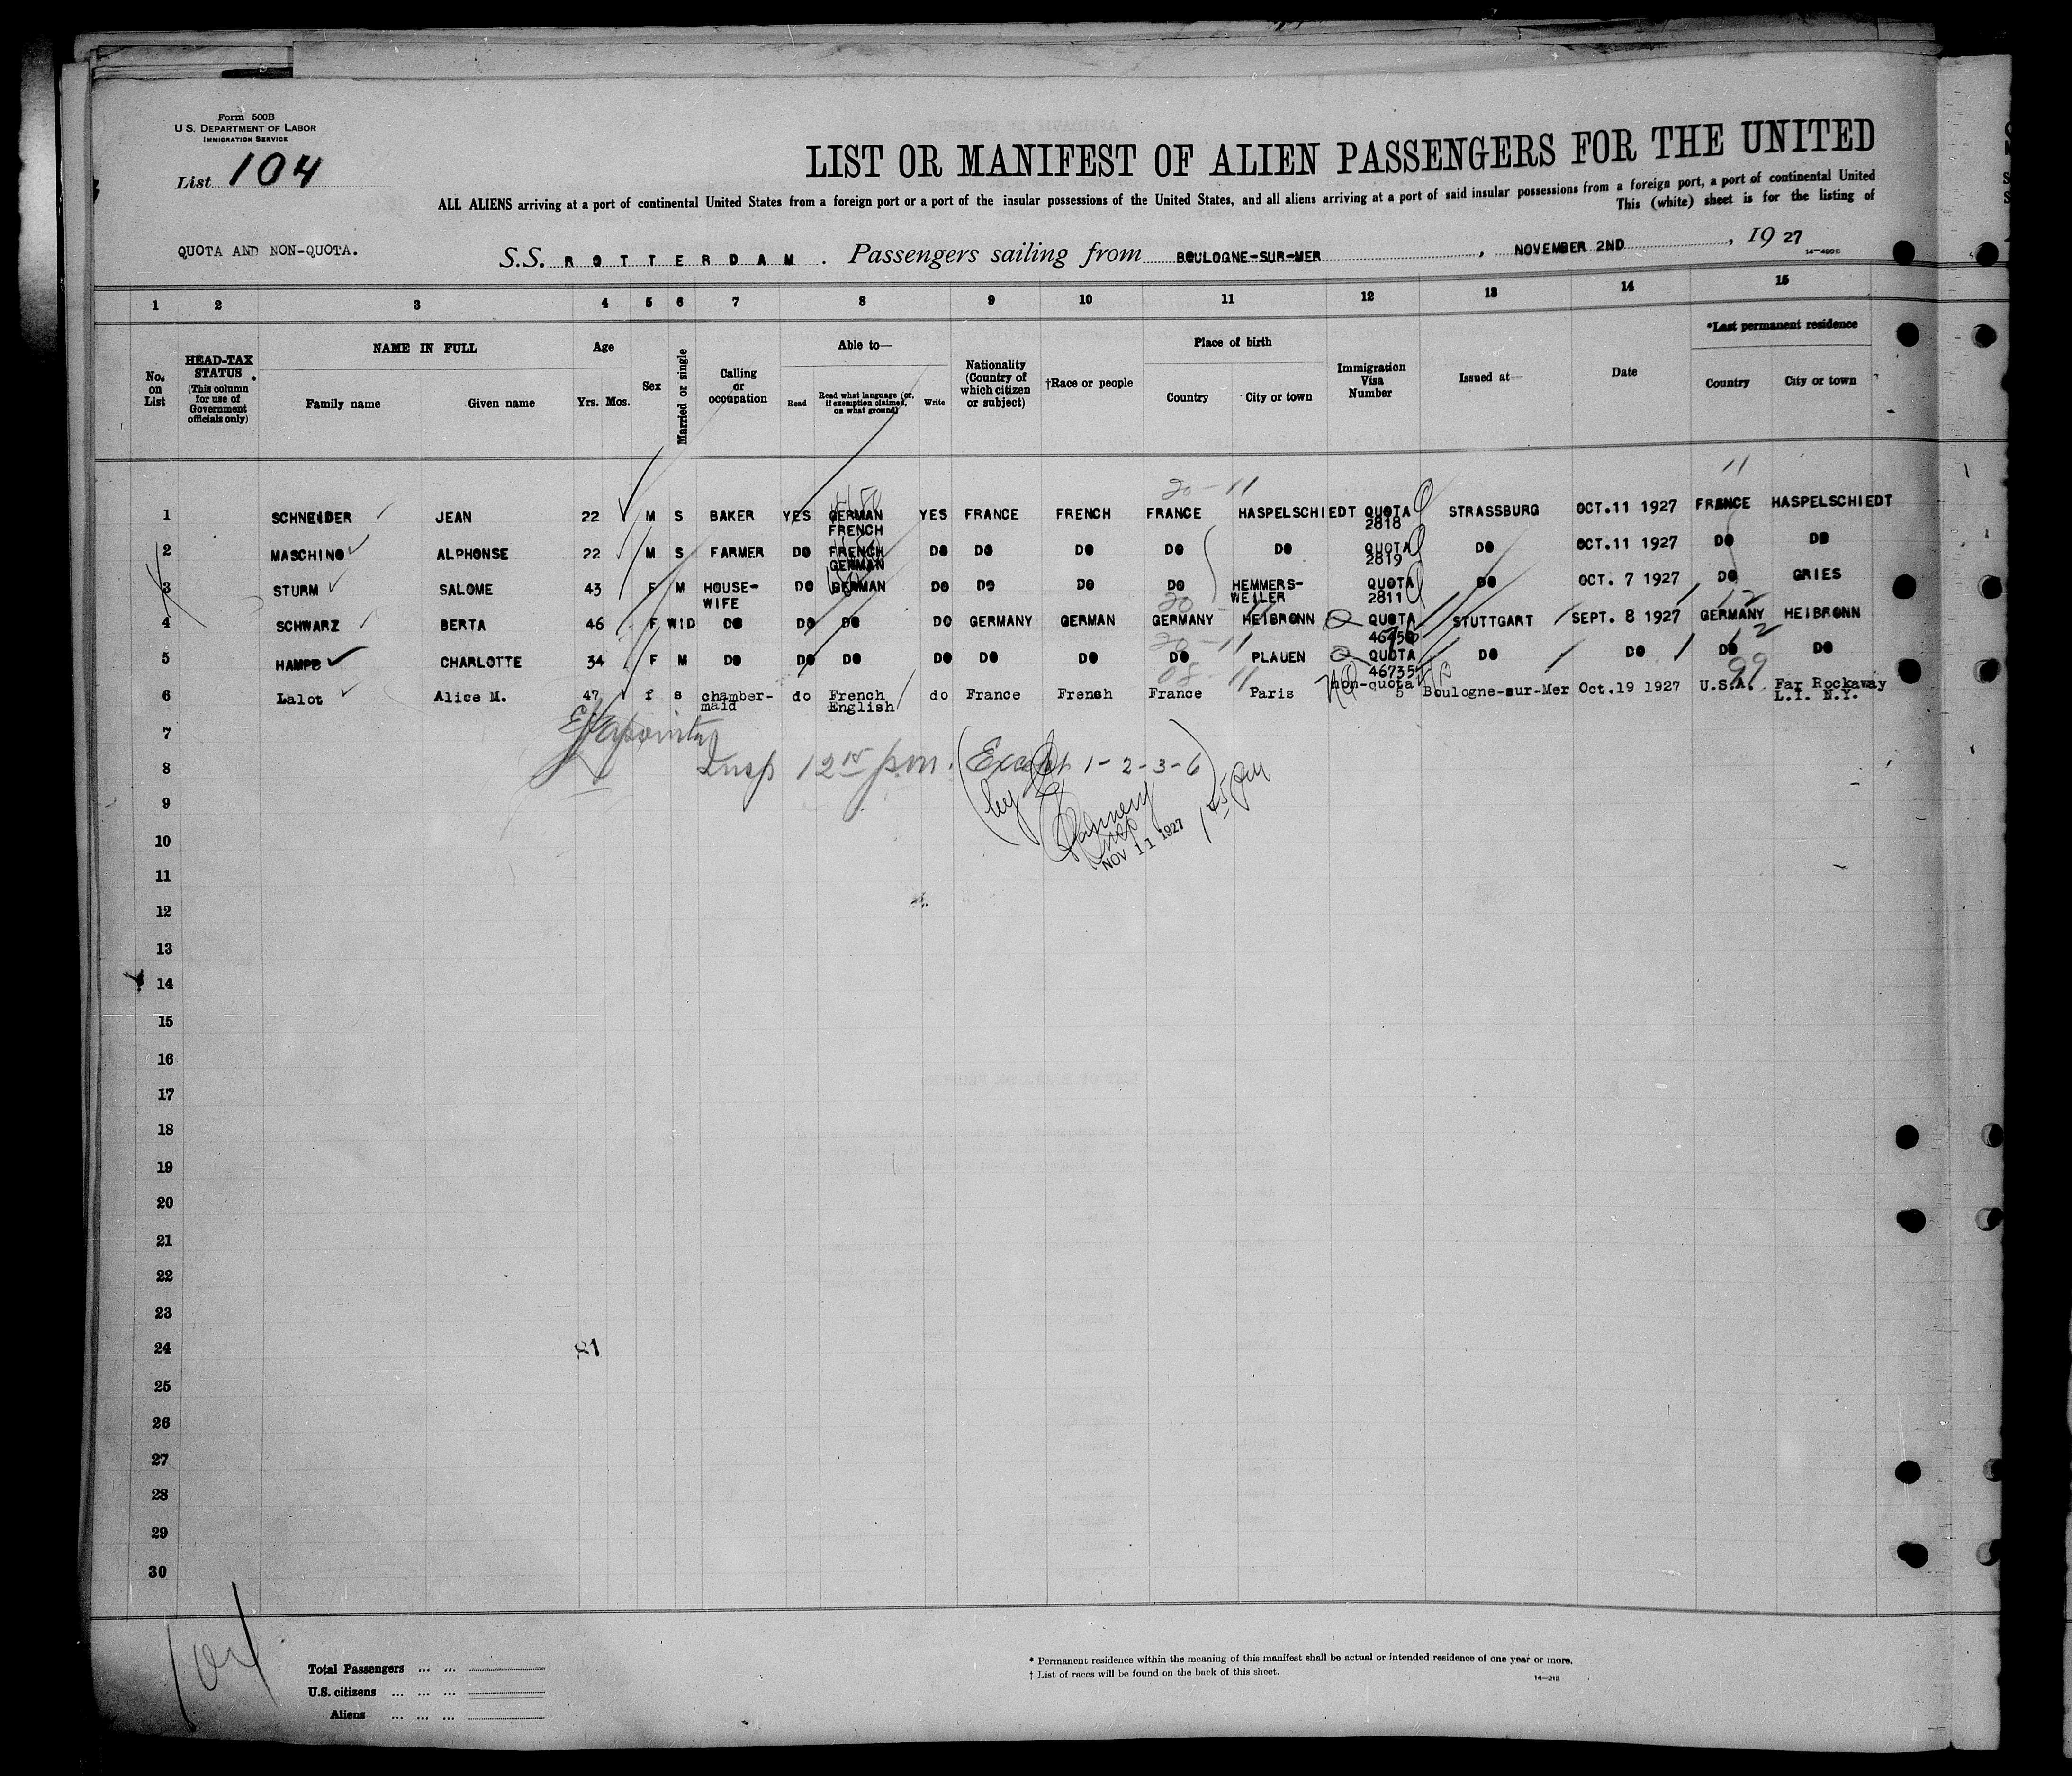 Form 500B
U.S. DEPARTMENT OF LABOR
IMMIGRATION SERVICE
List 104
LIST OR MANIFEST OF ALIEN PASSENGERS FOR THE UNITED
ALL ALIENS arriving at a port of continental United States from a foreign port or a port of the insular possessions of the United States, and all aliens arriving at a port of said insular possessions from a foreign port, a port of continental United
This (white) sheet is for the listing of
QUOTA AND NON-QUOTA.
S.S. ROTTERDAM. Passengers sailing from BOULOGNE-SUR-MER, NOVEMBER 2ND, 19 27
14-480B
1 2 3 4 5 6 7 8 9 10 11 12 13 14 15
No. on List
HEAD-TAX STATUS (This column for use of Government officials only)
NAME IN FULL
Family name Given name
Age
Yrs. Mos.
Sex
Married or single
Calling or occupation
Able to—
Read Read what language (or, if exemption claimed, on what ground) Write
Nationality (Country of which citizen or subject)
†Race or people
Place of birth
Country City or town
Immigration Visa Number
Issued at—
Date
*Last permanent residence
Country City or town
20 - 11
11
1 SCHNEIDER JEAN 22 M S BAKER YES GERMAN FRENCH YES FRANCE FRENCH FRANCE HASPELSCHIEDT QUOTA 2818 STRASSBURG OCT.11 1927 FRANCE HASPELSCHIEDT
2 MASCHINO ALPHONSE 22 M S FARMER DO FRENCH GERMAN DO DO DO DO DO QUOTA 2819 DO OCT.11 1927 DO DO
3 STURM SALOME 43 F M HOUSE-WIFE DO GERMAN DO DO DO DO HEMMERS-WEILER QUOTA 2811 DO OCT. 7 1927 DO GRIES
20 - 11
12
4 SCHWARZ BERTA 46 F WID DO DO DO DO GERMANY GERMAN GERMANY HEIBRONN QUOTA STUTTGART SEPT. 8 1927 GERMANY HEIBRONN
20 - 11
12
5 CHARLOTTE 34 F M DO DO DO DO DO DO DO PLAUEN QUOTA 46735 DO DO DO DO
08 - 11
99
6 Lalot Alice M. 47 f s chamber-maid do French English do France French France Paris non-quota 5 Boulogne-sur-Mer Oct.19 1927 U.S.A. Far Rockaway L.I. N.Y.
7
Insp 12 pm. (Except 1-2-3-6)
8
by
1 45 pm
9
Insp
NOV 11 1927
10
11
12
13
14
15
16
17
18
19
20
21
22
23
24
25
26
27
28
29
30
104
Total Passengers ... ...
U.S. citizens ... ... ...
Aliens ... ... ...
* Permanent residence within the meaning of this manifest shall be actual or intended residence of one year or more.
† List of races will be found on the back of this sheet.
14-218